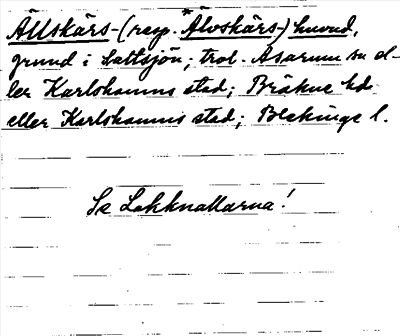 Allskärs- (resp. *Älvskärs-) huvud,
grund i Saltsjön; trol. Asarums sn el-
ler Karlshamns stad; Bräkne hd
eller Karlshamns stad; Blekinge l.
Se Lokknallarna!